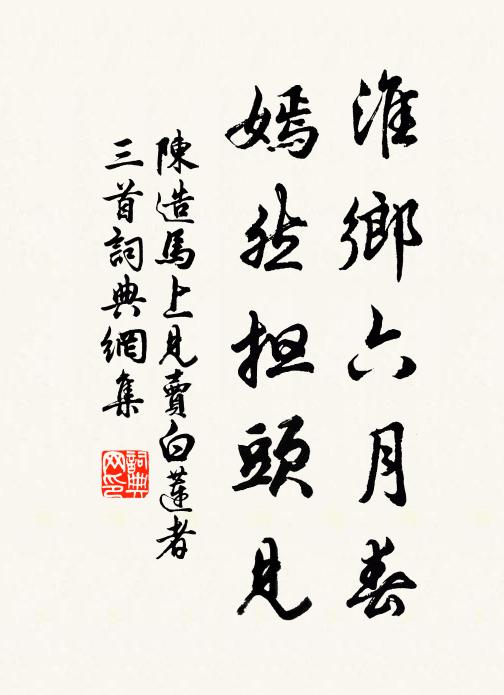 淮鄉六月春
嫣然担頭見
陳造馬上見賣白蓮者
三首詞典網集
詞典网印